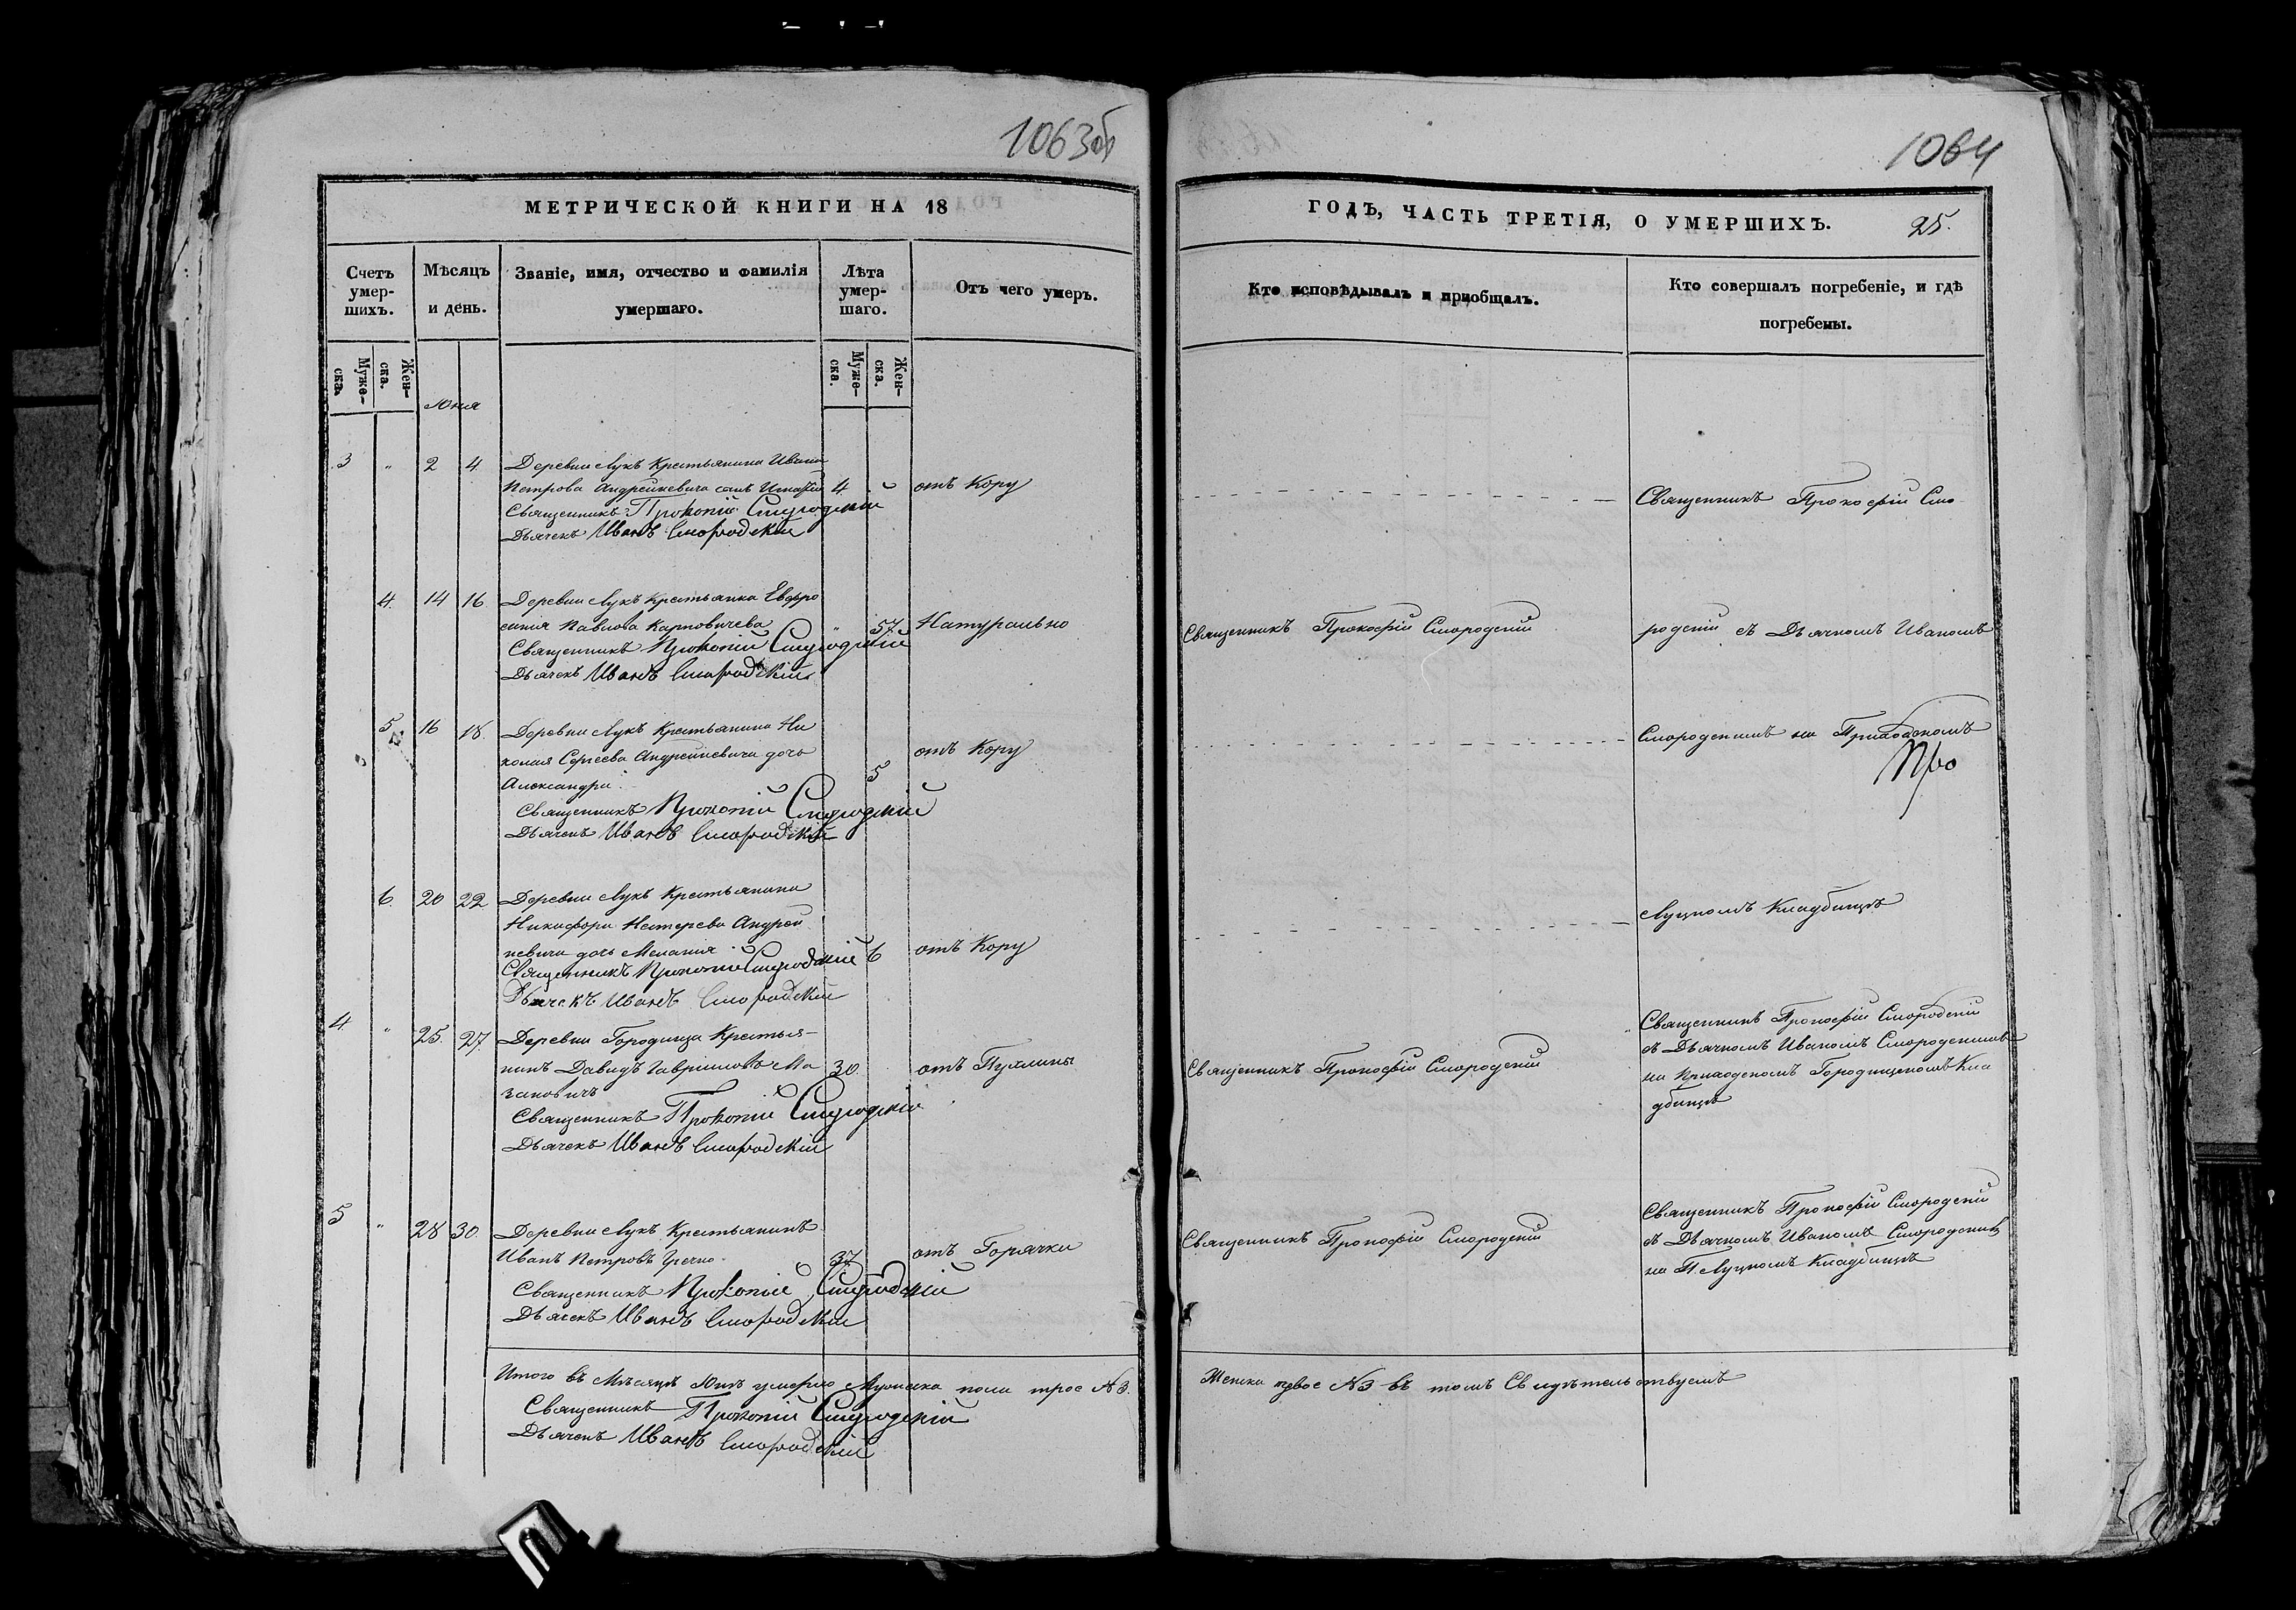 1063об
МЕТРИЧЕСКОЙ КНИГИ НА 18
Счетъ умер-шихъ.
Мѣсяцъ и день.
Званіе, имя, отчество и фамилія умершаго.
Лѣта умер-шаго.
Отъ чего умеръ.
Муже-ска.
Жен-ска.
Муже-ска.
Жен-ска.
Юня
3 " 2 4
Деревни Лукъ Крестьянина Ивана
Петрова Андрейкевича сынъ 4 отъ Кору
Священникъ Прокопій Смородскій
Дьячекъ Иванъ Смородскій
4. 14 16
Деревни Лукъ Крестьянка Евфро
синия Павлова Карповичева " 57 Натурально
Священникъ Прокопій Смородскій
Дьячекъ Иванъ Смородскій
5. 16 18.
Деревни Лукъ Крестьянина Ни
колая Сергеева Андрейкевича дочь 5 отъ Кору
Александра
Священникъ Прокопій Смородскій
Дьячекъ Иванъ Смородскій
6. 20 22
Деревни Лукъ Крестьянина
Никифора Нестерева Андрей
кевича дочь Мелания 6 отъ Кору
Священникъ Прокопій Смородскій
Дьячекъ Иванъ Смородскій
4 " 25. 27.
Деревни Городища Крестья-
нинъ Давидъ Гавриловъ Ма 30. отъ Пухлины
зановичъ
Священникъ Прокопій Смородскій
Дьячекъ Иванъ Смородскій
5 " 28 30.
Деревни Лукъ Крестьянинъ
Иванъ Петровъ 37 отъ Горячки
Священникъ Прокопій Смородскій
Дьячекъ Иванъ Смородскій
Итого въ Мѣсяцѣ Юнѣ умерло Мужеска пола трое №3.
Священникъ Прокопій Смородскій
Дьячекъ Иванъ Смородскій
1064
ГОДЪ, ЧАСТЬ ТРЕТІЯ, О УМЕРШИХЪ.
25.
Кто исповѣдывалъ и приобщалъ.
Кто совершалъ погребеніе, и гдѣ погребены.
Священникъ Прокофій Смо
Священникъ Прокофій Смородскій
родскій съ Дьячкомъ Иваномъ
Смородскимъ на Приходскомъ
Луцкомъ Кладбищѣ
Священникъ Прокофій Смородскій
съ Дьячкомъ Иваномъ Смородскимъ
Священникъ Прокофій Смородскій
на Приходскомъ Городищскомъ Кла
дбищѣ
Священникъ Прокофій Смородскій
Священникъ Прокофій Смородскій
съ Дьячкомъ Иваномъ Смородскимъ
на П. Луцкомъ Кладбищѣ
Женска трое №3 въ томъ Свидѣтельствуемъ